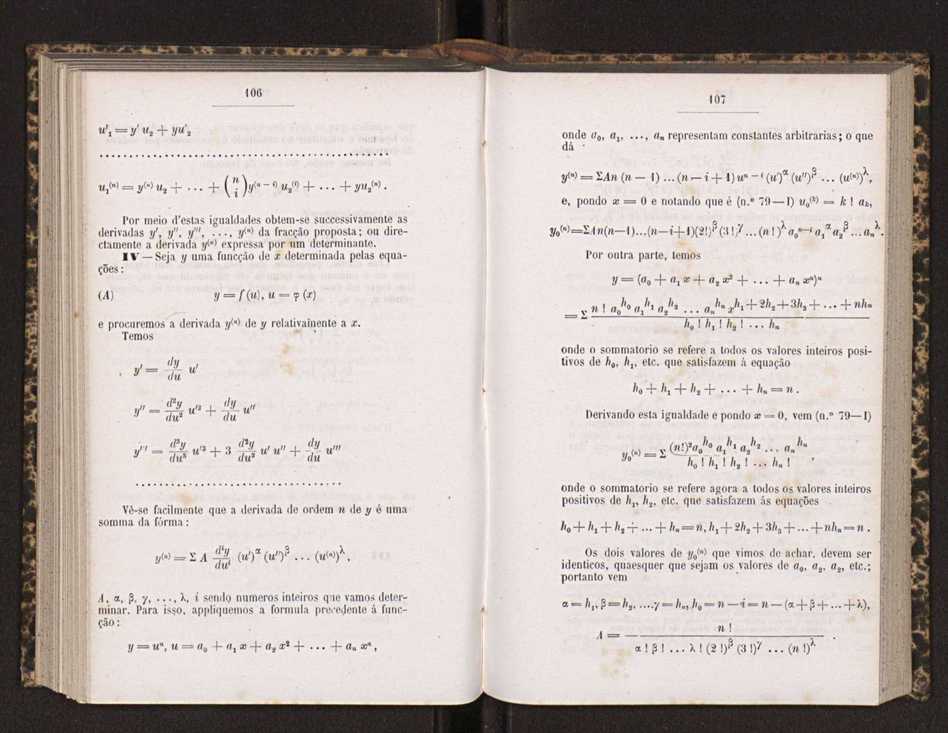 106
u'₁ = y' u₂ + yu'₂
. . . . . . . . . . . . . . . . . . . . . . . . . . . . . . . . . . . . . . . . . .
u₁⁽ⁿ⁾ = y⁽ⁿ⁾ u₂ + ... + (n i) y⁽ⁿ⁻ⁱ⁾ u₂⁽ⁱ⁾ + ... + yu₂⁽ⁿ⁾.
Por meio d'estas igualdades obtem-se successivamente as
derivadas y', y'', y''', ..., y⁽ⁿ⁾ da fracção proposta; ou dire-
ctamente a derivada y⁽ⁿ⁾ expressa por um determinante.
IV — Seja y uma funcção de x determinada pelas equa-
ções:
(A) y = f (u), u = φ (x)
e procuremos a derivada y⁽ⁿ⁾ de y relativamente a x.
Temos
y' = dy/du u'
y'' = d²y/du² u'² + dy/du u''
y''' = d³y/du³ u'³ + 3 d²y/du² u' u'' + dy/du u'''
. . . . . . . . . . . . . . . . . . . . . . . . . . . . . .
Vê-se facilmente que a derivada de ordem n de y é uma
somma da fórma:
y⁽ⁿ⁾ = Σ A dⁱy/duⁱ (u')^α (u'')^β ... (u⁽ⁿ⁾)^λ,
A, α, β, γ, ..., λ, i sendo numeros inteiros que vamos deter-
minar. Para isso, appliquemos a formula precedente á func-
ção:
y = uⁿ, u = a₀ + a₁ x + a₂ x² + ... + aₙ xⁿ,
107
onde a₀, a₁, ..., aₙ representam constantes arbitrarias; o que
dá
y⁽ⁿ⁾ = ΣAn (n — 1) ... (n — i + 1) uⁿ⁻ⁱ (u')^α (u'')^β ... (u⁽ⁿ⁾)^λ,
e, pondo x = 0 e notando que é (n.º 79—I) u₀⁽ᵏ⁾ = k ! aₖ,
y₀⁽ⁿ⁾ = ΣAn(n—1)...(n—i+1)(2!)^β (3!)^γ ... (n!)^λ a₀ⁿ⁻ⁱ a₁^α a₂^β ... aₙ^λ.
Por outra parte, temos
y = (a₀ + a₁ x + a₂ x² + ... + aₙ xⁿ)ⁿ
= Σ n ! a₀^h₀ a₁^h₁ a₂^h₂ ... aₙ^hₙ x^h₁ + 2h₂ + 3h₃ + ... + nhₙ / h₀ ! h₁ ! h₂ ! ... hₙ
onde o sommatorio se refere a todos os valores inteiros posi-
tivos de h₀, h₁, etc. que satisfazem á equação
h₀ + h₁ + h₂ + ... + hₙ = n.
Derivando esta igualdade e pondo x = 0, vem (n.º 79—I)
y₀⁽ⁿ⁾ = Σ (n!)² a₀^h₀ a₁^h₁ a₂^h₂ ... aₙ^hₙ / h₀ ! h₁ ! h₂ ! ... hₙ ! ,
onde o sommatorio se refere agora a todos os valores inteiros
positivos de h₁, h₂, etc. que satisfazem ás equações
h₀ + h₁ + h₂ + ... + hₙ = n, h₁ + 2h₂ + 3h₃ + ... + nhₙ = n.
Os dois valores de y₀⁽ⁿ⁾ que vimos de achar, devem ser
identicos, quaesquer que sejam os valores de a₀, a₂, a₂, etc.;
portanto vem
α = h₁, β = h₂, ....γ = hₙ, h₀ = n — i = n — (α + β + ... + λ),
A = n ! / α ! β ! ... λ ! (2 !)^β (3 !)^γ ... (n !)^λ .